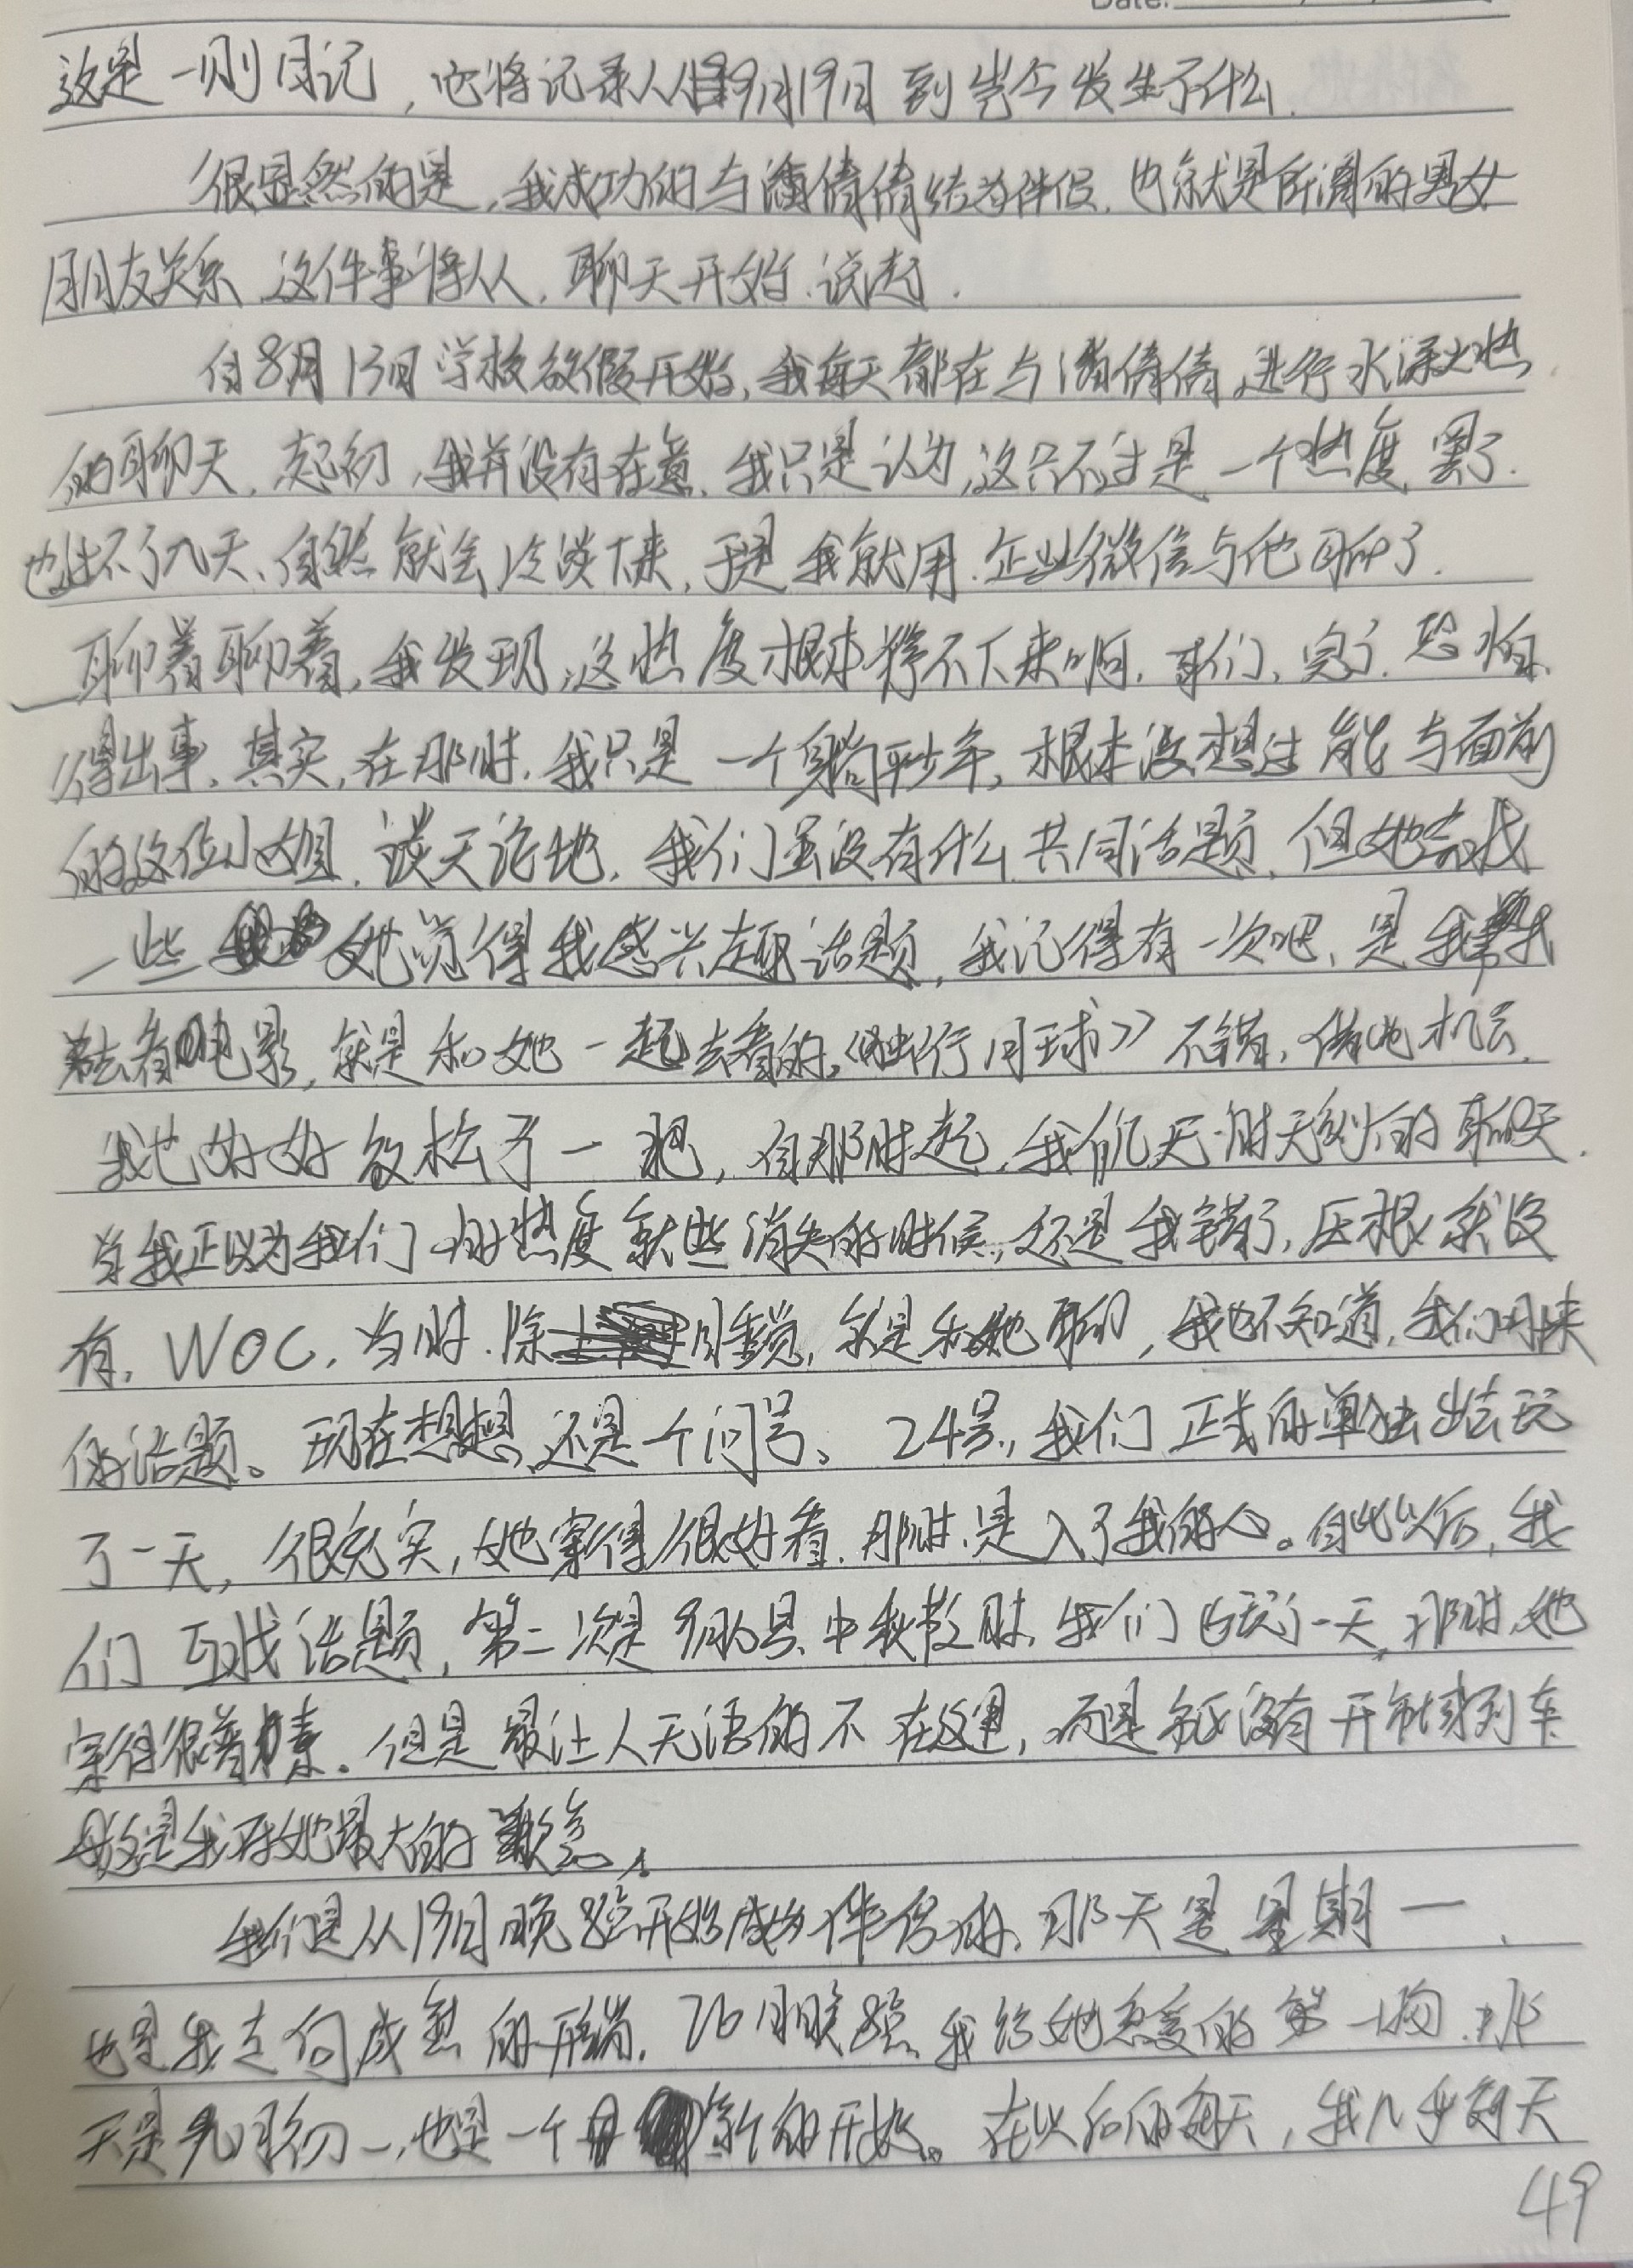 Date:
这是一则日记,它将记录从9月19日到当今发生了什么.
很显然的是,我成功的与潘倩倩结为伴侣.也就是所谓的男女
朋友关系.这件事将从,聊天开始.说起.
自8月13日学校放假开始,我每天都在与潘倩倩,进行水深火热
的聊天,起初,我并没有在意.我只是认为,这只不过是一个热度,罢了.
也过不了几天、自然就会冷淡下来,于是我就用.企业微信与他聊了.
聊着聊着,我发现,这热度根本降不下来啊.哥们,完了.恐怕
得出事.其实,在那时.我只是一个躺平少年,根本没想过能与面前
的这位小姐.谈天论地.我们虽没有什么共同话题,但她会找
一些她觉得我感兴趣话题,我记得有一次吧、是我
去看电影,就是和她一起去看的,《独行月球》不错,借此机会.
我也好好放松了一把,自那时起,我们无时无刻的聊天.
当我正以为我们的热度就些消失的时候,还是我错了,压根就没
有.WOC.当时.除月锁,就是和她聊,我也不知道,我们哪来
的话题。现在想想,还是一个问号、24号,我们正式的单独出去玩
了一天,很充实,她穿得很好看.那时.是入了我的心。自此以后,我
们互找话题,第二次是9月10号.中秋放时.我们玩了一天,那时,她
穿得很普素。但是最让人无语的不在这里,而是就没有开
这是我对她最大的歉意.
我们是从19日晚8点开始成为伴侣的、那天是星期一.
也是我走向成熟的开端.26日晚8点.我给她恋爱的第一吻.那
天是九月初一,也是一个新的开始。在以后的每天,我几乎每天
49